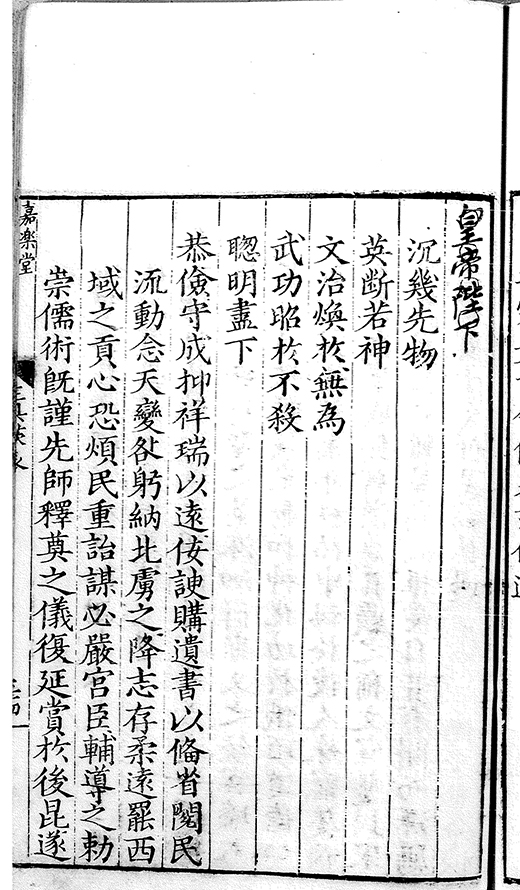 皇帝陛下
沉幾先物
英断若神
文治煥扵無為
武功昭扵不殺
聦明盡下
恭儉守成抑祥瑞以遠佞諛購遺書以俻省閱民
流動念天變咎躬納北虜之降志存柔遠罷西
域之貢心恐煩民重詒謀必嚴宫臣輔導之勑
崇儒術既謹先師釋奠之儀復延賞扵後昆遂
嘉楽堂